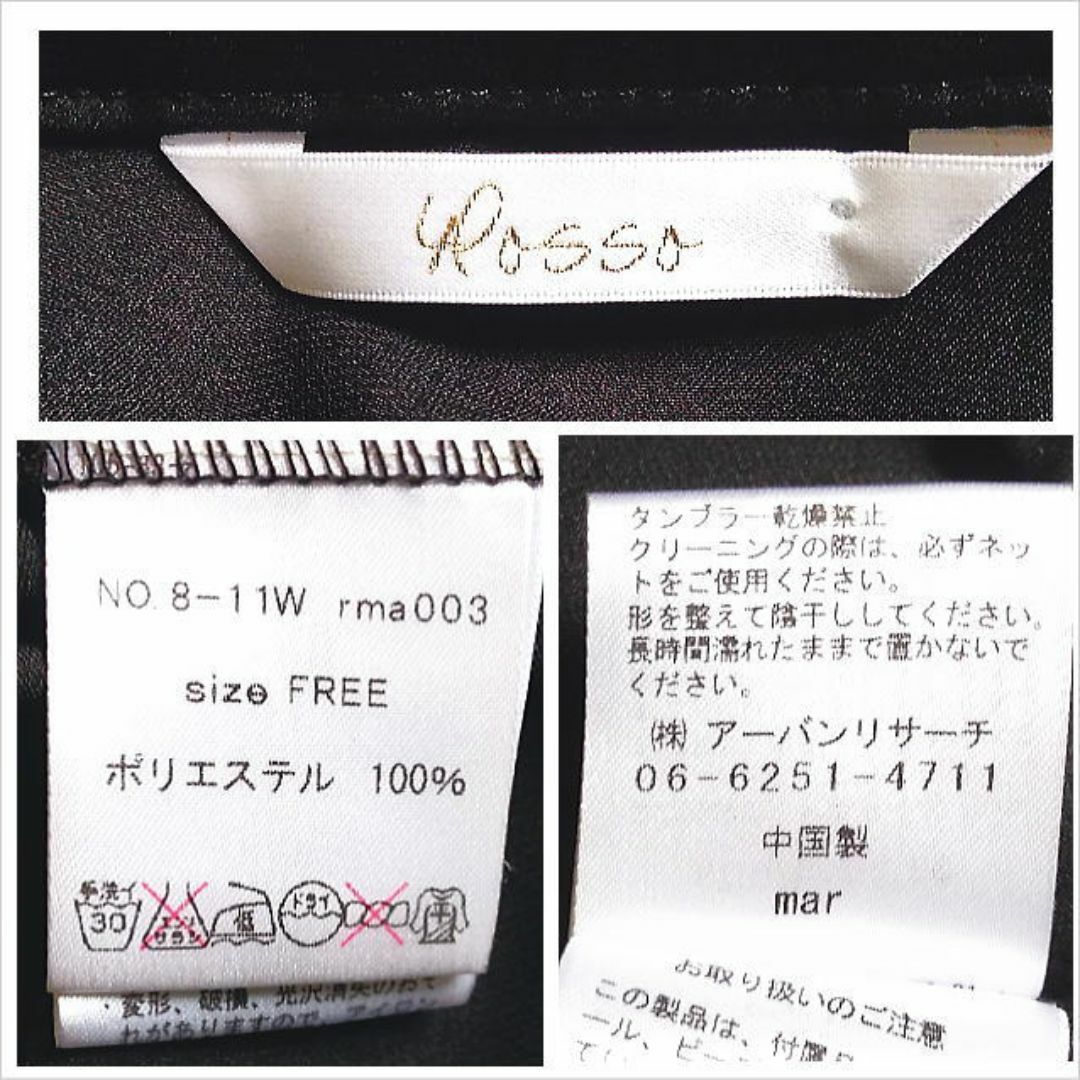 Rosso
NO. 8-11W rma003
size FREE
ポリエステル 100%
手洗イ
30
エンソ
サラシ
低
ドライ
・変形、破損、光沢消失のおそ
れがありますので、アイロン
タンブラー乾燥禁止
クリーニングの際は、必ずネッ
トをご使用ください。
形を整えて陰干ししてください。
長時間濡れたままで置かないで
ください。
(株) アーバンリサーチ
06-6251-4711
中国製
mar
お取り扱いのご注意
この製品は、付属
ール、ビー